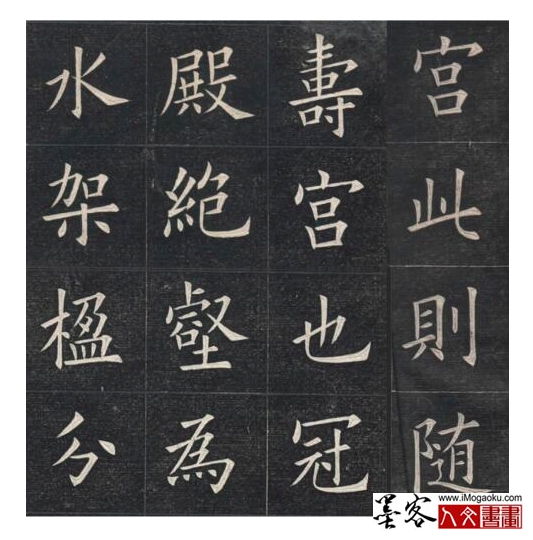 宫此則随
壽宫也冠
殿絶壑為
水架楹分
墨客
www.iMogaoku.com
人文書畫